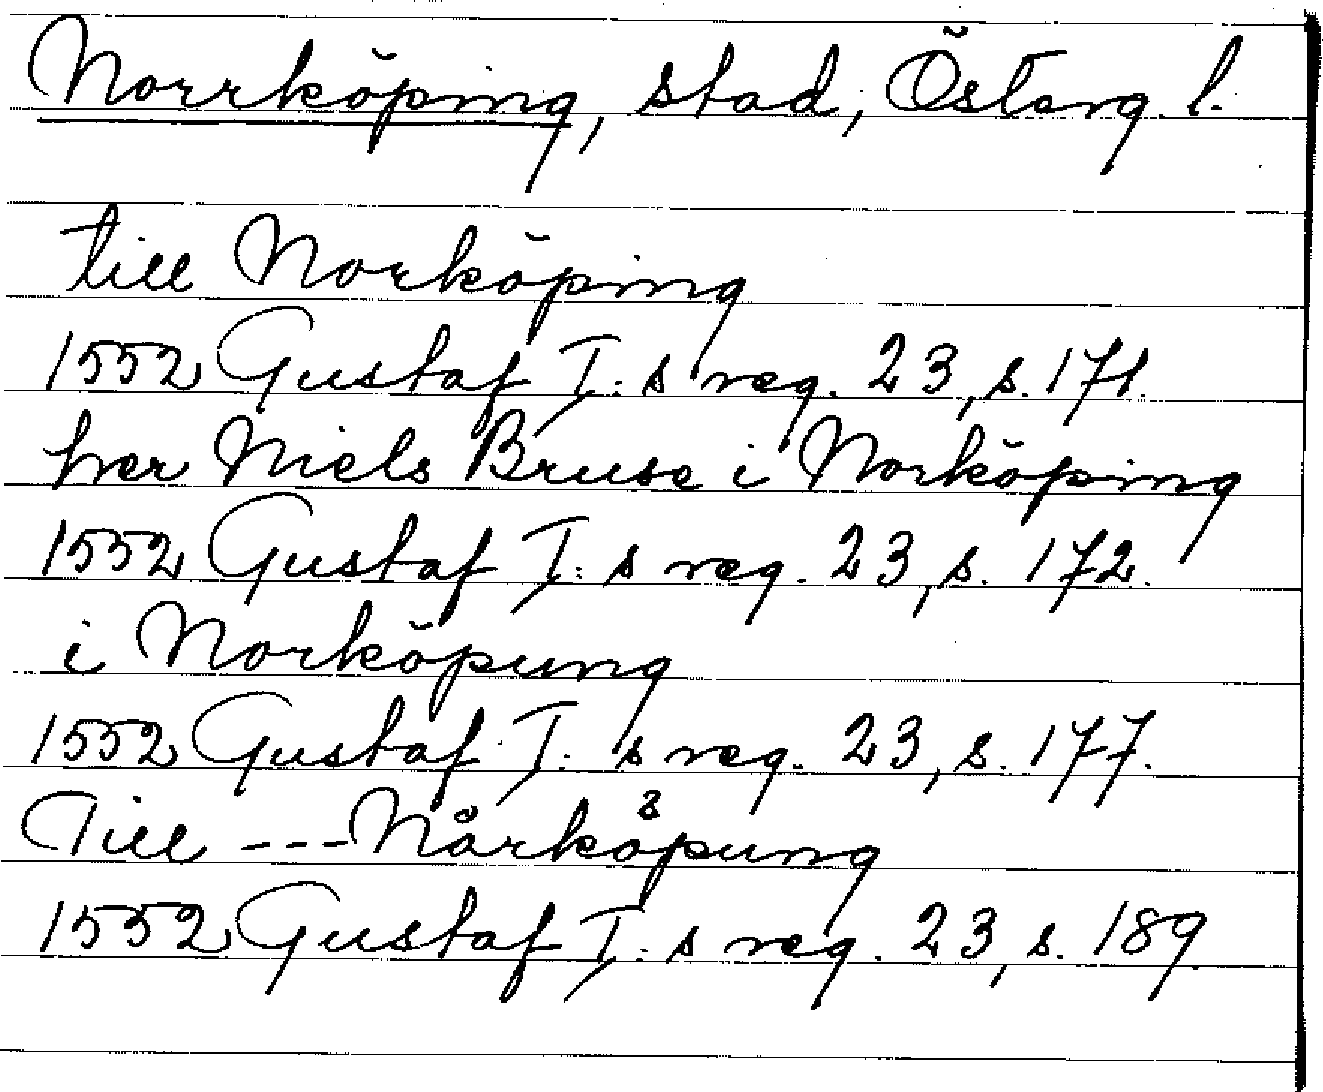 Norrköping, stad, Österg. l.
till Norköping
1552 Gustaf I: s reg. 23, s. 171.
her Niels Bruse i Norköping
1552 Gustaf I: s reg. 23, s. 172.
i Norköpung
1552 Gustaf I: s reg. 23, s. 177.
Till --- Nårkåpung
1552 Gustaf I: s reg. 23, s. 189.